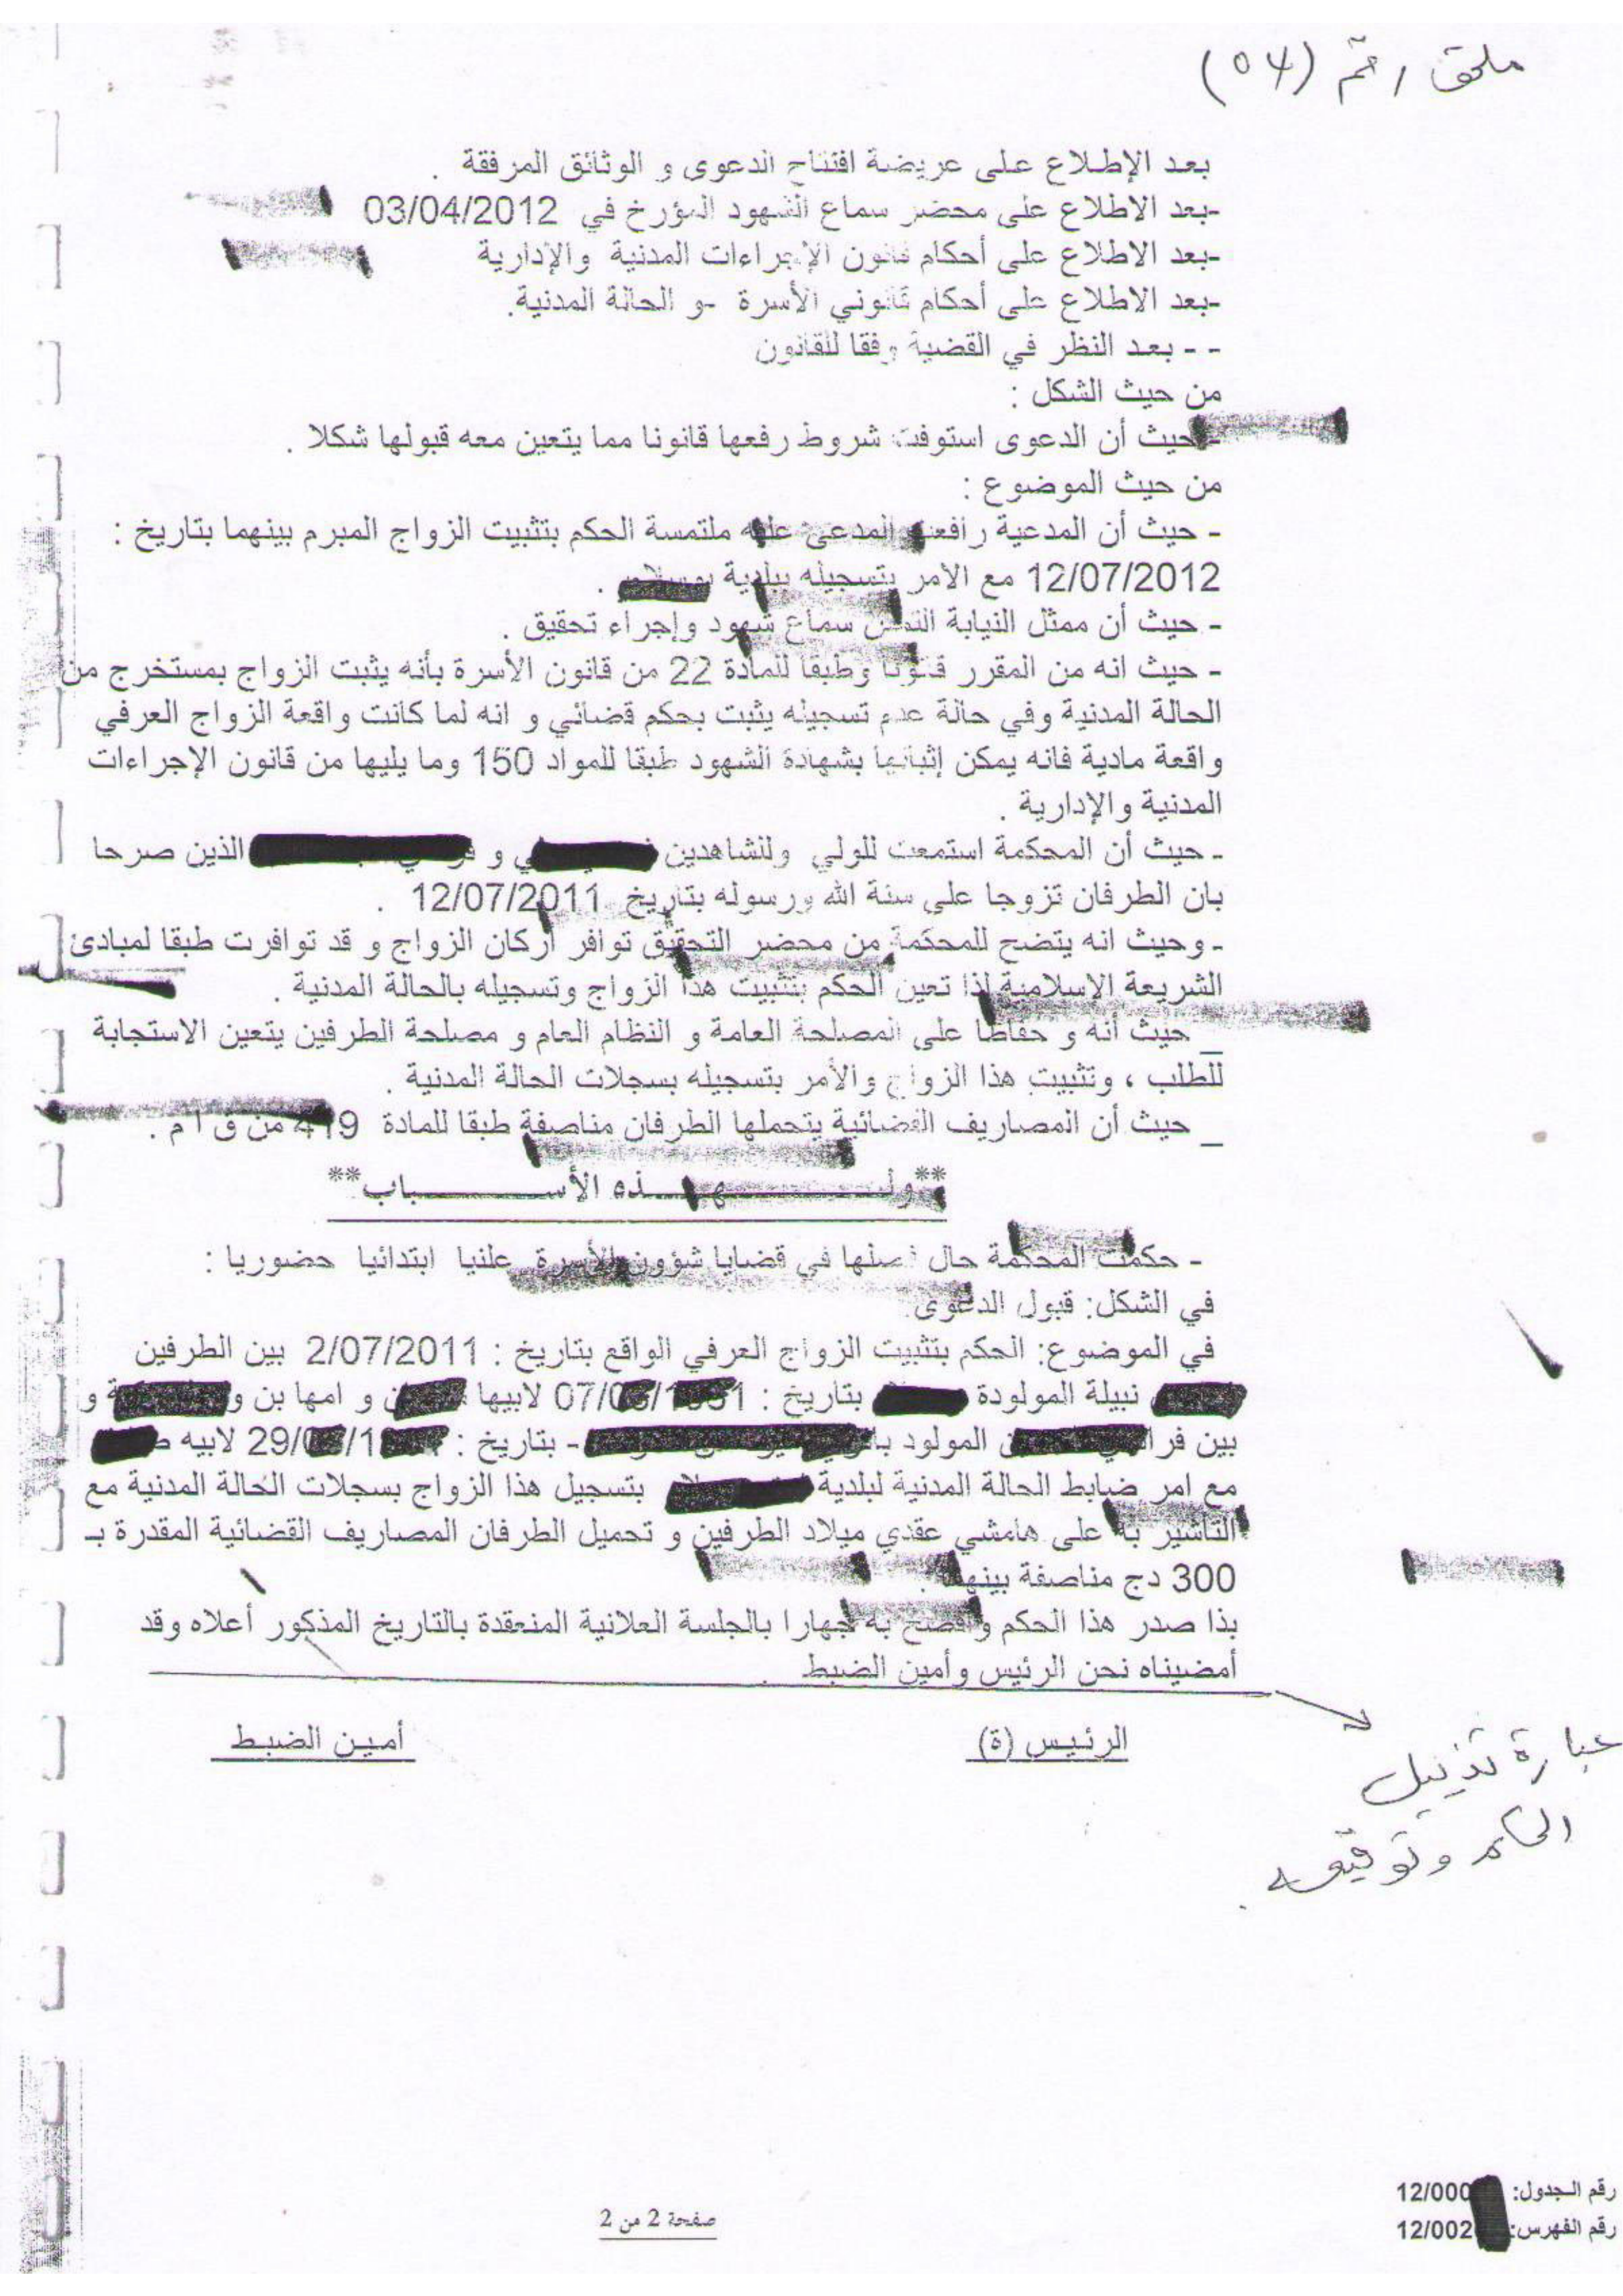 ملحق رقم (04)
بعد الإطلاع على عريضة افتتاح الدعوى و الوثائق المرفقة .
-بعد الاطلاع على محضر سماع الشهود المؤرخ في 03/04/2012
-بعد الاطلاع على أحكام قانون الإجراءات المدنية والإدارية
-بعد الاطلاع على أحكام قانوني الأسرة -و الحالة المدنية.
- - بعد النظر في القضية وفقا للقانون
من حيث الشكل :
- حيث أن الدعوى استوفت شروط رفعها قانونا مما يتعين معه قبولها شكلا .
من حيث الموضوع :
- حيث أن المدعية رافعت المدعى عليه ملتمسة الحكم بتثبيت الزواج المبرم بينهما بتاريخ :
12/07/2012 مع الامر بتسجيله ببلدية .
- حيث أن ممثل النيابة التمس سماع شهود وإجراء تحقيق .
- حيث انه من المقرر قانونا وطبقا للمادة 22 من قانون الأسرة بأنه يثبت الزواج بمستخرج من
الحالة المدنية وفي حالة عدم تسجيله يثبت بحكم قضائي و انه لما كانت واقعة الزواج العرفي
واقعة مادية فانه يمكن إثباتها بشهادة الشهود طبقا للمواد 150 وما يليها من قانون الإجراءات
المدنية والإدارية .
- حيث أن المحكمة استمعت للولي وللشاهدين و الذين صرحا
بان الطرفان تزوجا على سنة الله ورسوله بتاريخ 12/07/2011 .
- وحيث انه يتضح للمحكمة من محضر التحقيق توافر أركان الزواج و قد توافرت طبقا لمبادئ
الشريعة الإسلامية لذا تعين الحكم بتثبيت هذا الزواج وتسجيله بالحالة المدنية .
_ حيث أنه و حفاظا على المصلحة العامة و النظام العام و مصلحة الطرفين يتعين الاستجابة
للطلب ، وتثبيت هذا الزواج والأمر بتسجيله بسجلات الحالة المدنية .
_ حيث أن المصاريف القضائية يتحملها الطرفان مناصفة طبقا للمادة 419 من ق ا م .
**ولـــــهـــذه الأســـــباب**
- حكمت المحكمة حال فصلها في قضايا شؤون الأسرة علنيا ابتدائيا حضوريا :
في الشكل: قبول الدعوى
في الموضوع: الحكم بتثبيت الزواج العرفي الواقع بتاريخ : 2/07/2011 بين الطرفين
نبيلة المولودة بتاريخ : 07/ لابيها و امها بن و
بين المولود - بتاريخ : 29/ لابيه
مع امر ضابط الحالة المدنية لبلدية بتسجيل هذا الزواج بسجلات الحالة المدنية مع
التاشير به على هامشي عقدي ميلاد الطرفين و تحميل الطرفان المصاريف القضائية المقدرة بـ
300 دج مناصفة بينهما .
بذا صدر هذا الحكم وافصح به جهارا بالجلسة العلانية المنعقدة بالتاريخ المذكور أعلاه وقد
أمضيناه نحن الرئيس وأمين الضبط .
الرئيس (ة) أمين الضبط
عبارة تذييل
الحكم وتوقيعه.
رقم الجدول: 12/000
رقم الفهرس: 12/002
صفحة 2 من 2